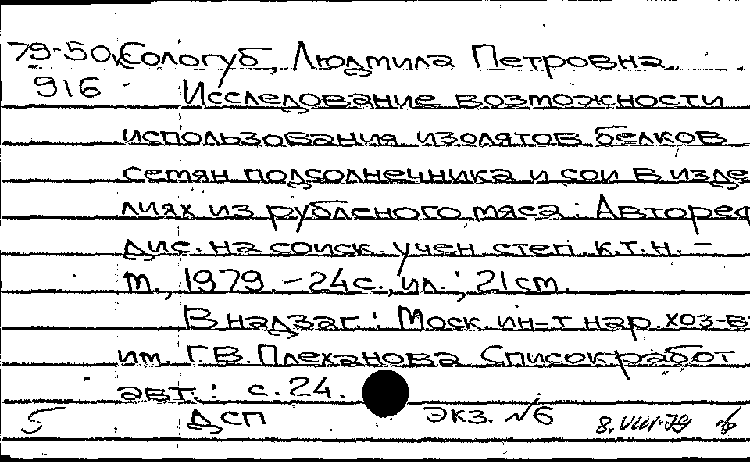 79-50 Сологуб, Людмила Петровна.
916 Исследование возможности
использования изолятов белков
семян подсолнечника и сои в изде
лиях из рубленого мяса: Авторе
дис. на соиск. учен степ. к.т.н. -
м., 1979. - 24 с., ил.; 21 см.
В надзаг.: Моск. ин-т нар. хоз-в
им. Г.В. Плеханова Список работ
авт.: с. 24.
5 ДСП экз. №6 8.VIII.79